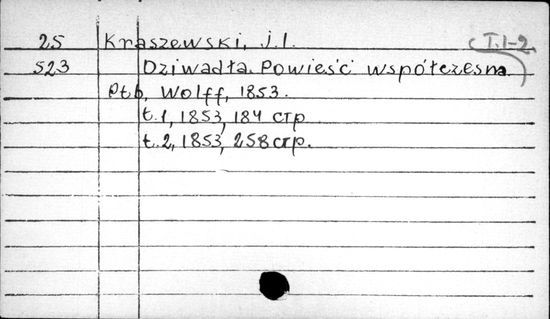 25 Kraszewski, J. I. T. 1-2.
523 Dziwadła. Powieść współczesna.
Ptb, Wolff, 1853.
t. 1, 1853, 184 стр
t. 2, 1853, 258 стр.